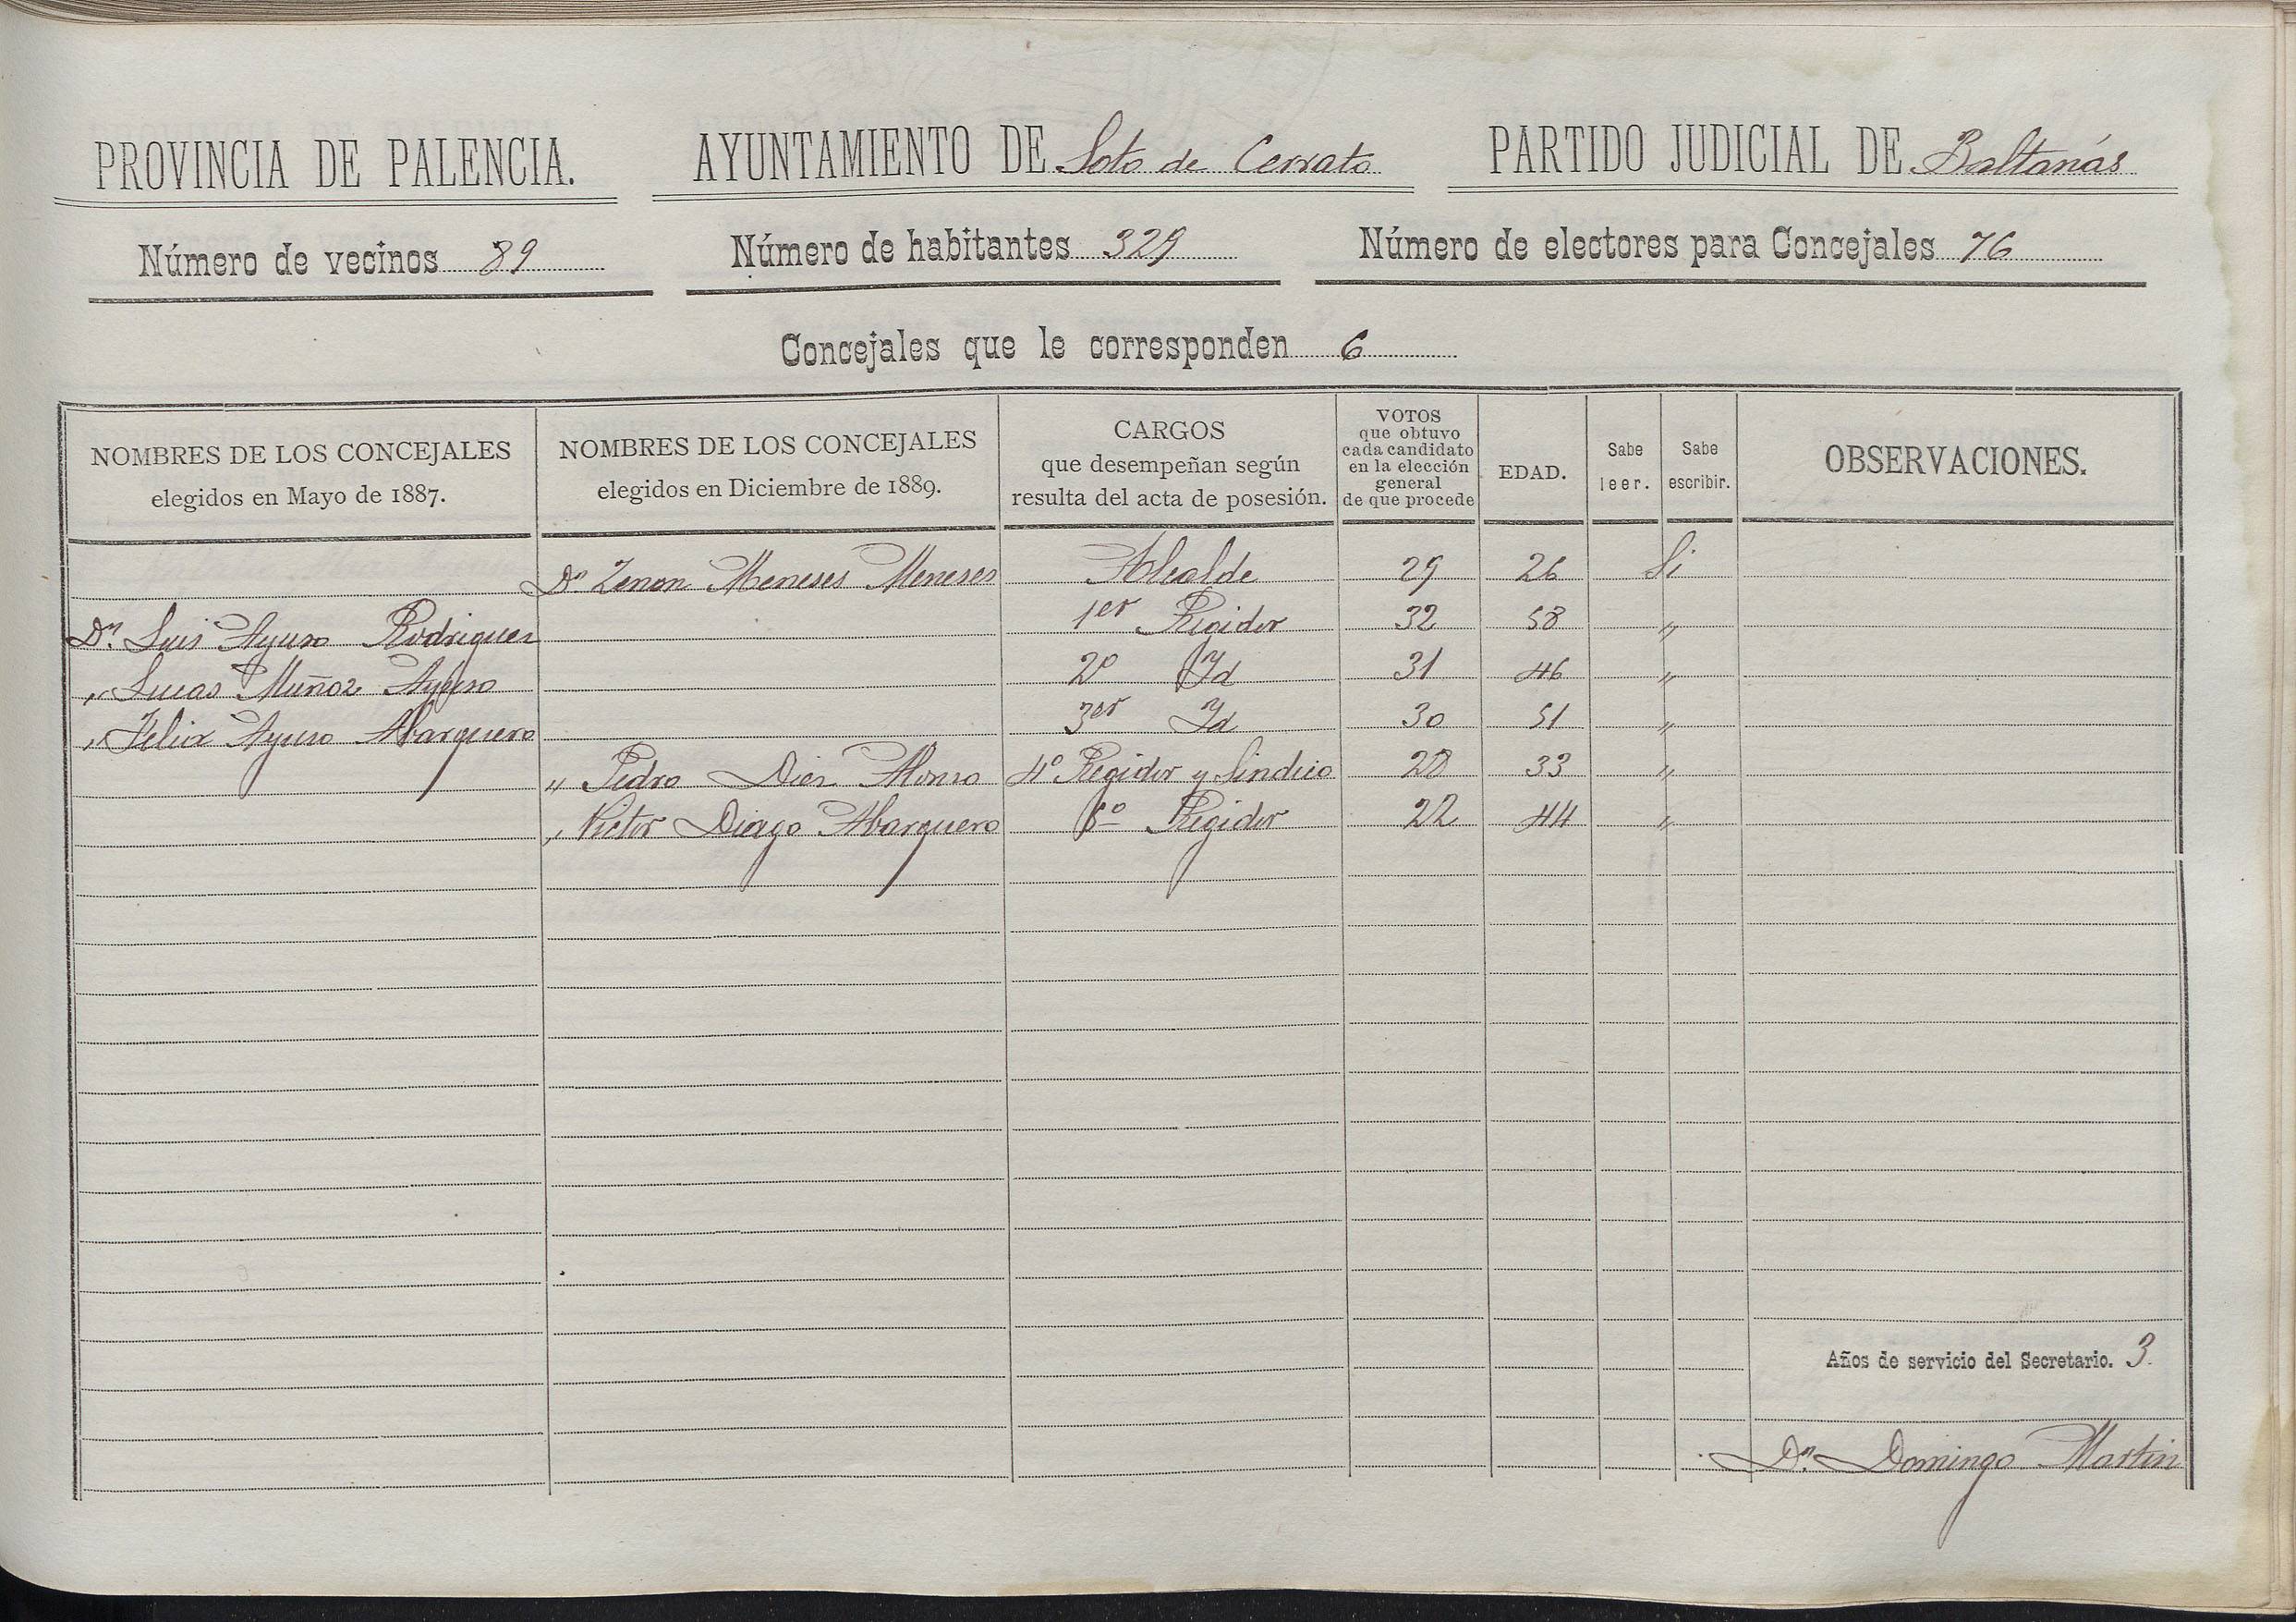 PROVINCIA DE PALENCIA. AYUNTAMIENTO DE Soto de Cerrato PARTIDO JUDICIAL DE Baltanás
Número de vecinos 89 Número de habitantes 329 Número de electores para Concejales 76
Concejales que le corresponden 6
NOMBRES DE LOS CONCEJALES elegidos en Mayo de 1887. NOMBRES DE LOS CONCEJALES elegidos en Diciembre de 1889. CARGOS que desempeñan según resulta del acta de posesión. VOTOS que obtuvo cada candidato en la elección general de que procede EDAD. Sabe leer. Sabe escribir. OBSERVACIONES.
Dn Zenon Meneses Meneses Alcalde 29 26 Si
Dn Luis Ayuso Rodriguez 1er Regidor 32 58 "
" Lucas Muñoz Ayuso 2º Id 31 46 "
" Felix Ayuso Abarquero 3er Id 30 51 "
" Pedro Diez Alonso 4º Regidor y Sindico 28 33 "
" Victor Diago Abarquero Regidor 22 44 "
Años de servicio del Secretario. 3.
Dn Domingo Martin